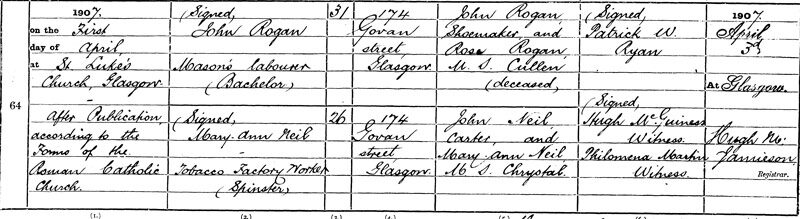 64
1907.
on the First
day of April,
at St. Luke's
Church, Glasgow.
After Publication,
according to the
Forms of the
Roman Catholic
Church.
(1.)
(Signed,
John Rogan
Mason's labourer
(Bachelor)
(Signed,
Mary-ann Neil
Tobacco Factory Worker
(Spinster)
(2.)
31
26
(3.)
174
Govan
street
Glasgow.
174
Govan
street
Glasgow.
(4.)
John Rogan,
Shoemaker, and
Rose Rogan,
M. S. Cullen
(deceased)
John Neil
Carter, and
Mary-ann Neil
M. S. Chrystal.
(Signed,
Patrick W.
Ryan
(Signed,
Hugh McGuiness
Witness.
Philomena Martin
Witness.
1907.
April
3d
At Glasgow.
Hugh M.
Jamieson
Registrar.
(7.)